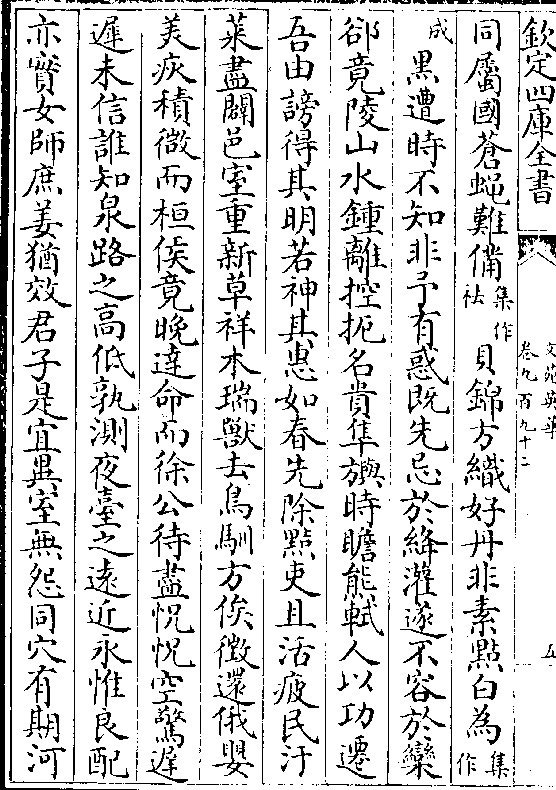 欽定四庫全書
文苑英華
卷九百九十二
五
同屬國蒼蝿難備集作祛貝錦方織好丹非素點白為集作
成黒遭時不知非予有惑既先忌於絳灌遂不容於欒
郤竟陵山水鍾離控扼名貴隼旟時瞻熊軾人以功遷
吾由謗得其明若神其惠如春先除點吏且活疲民汙
萊盡闢邑室重新草祥木瑞獸去鳥馴方俟徴還俄嬰
美疢積微而桓侯竟晩達命而徐公待盡怳怳空驚遲
遲未信誰知泉路之高低孰測夜臺之遠近永惟良配
亦實女師庶姜猶效君子是宜異室無怨同穴有期河